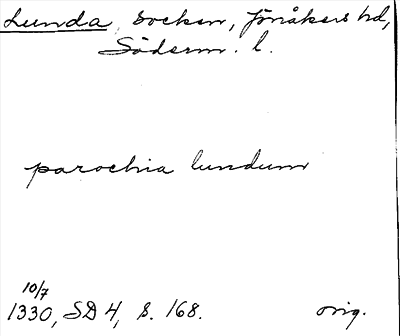 Lunda, socken, Jönåkers hd,
Söderm. l.
parochia lundum
10/7
1330, SD 4, s. 168. orig.